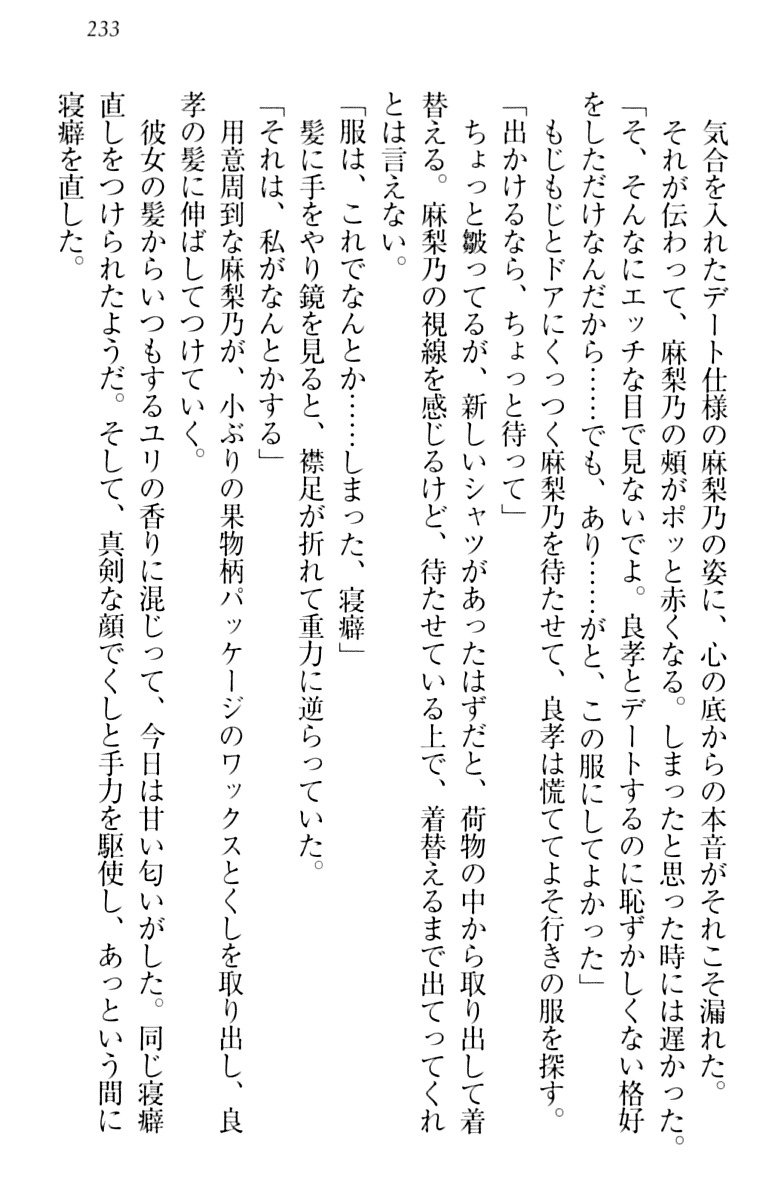 233
気合を入れたデート仕様の麻梨乃の姿に、心の底からの本音がそれこそ漏れた。
それが伝わって、麻梨乃の頰がポッと赤くなる。しまったと思った時には遅かった。
「そ、そんなにエッチな目で見ないでよ。良孝とデートするのに恥ずかしくない格好
をしただけなんだから……でも、あり……がと、この服にしてよかった」
もじもじとドアにくっつく麻梨乃を待たせて、良孝は慌ててよそ行きの服を探す。
「出かけるなら、ちょっと待って」
ちょっと皺ってるが、新しいシャツがあったはずだと、荷物の中から取り出して着
替える。麻梨乃の視線を感じるけど、待たせている上で、着替えるまで出てってくれ
とは言えない。
「服は、これでなんとか……しまった、寝癖」
髪に手をやり鏡を見ると、襟足が折れて重力に逆らっていた。
「それは、私がなんとかする」
用意周到な麻梨乃が、小ぶりの果物柄パッケージのワックスとくしを取り出し、良
孝の髪に伸ばしてつけていく。
彼女の髪からいつもするユリの香りに混じって、今日は甘い匂いがした。同じ寝癖
直しをつけられたようだ。そして、真剣な顔でくしと手力を駆使し、あっという間に
寝癖を直した。